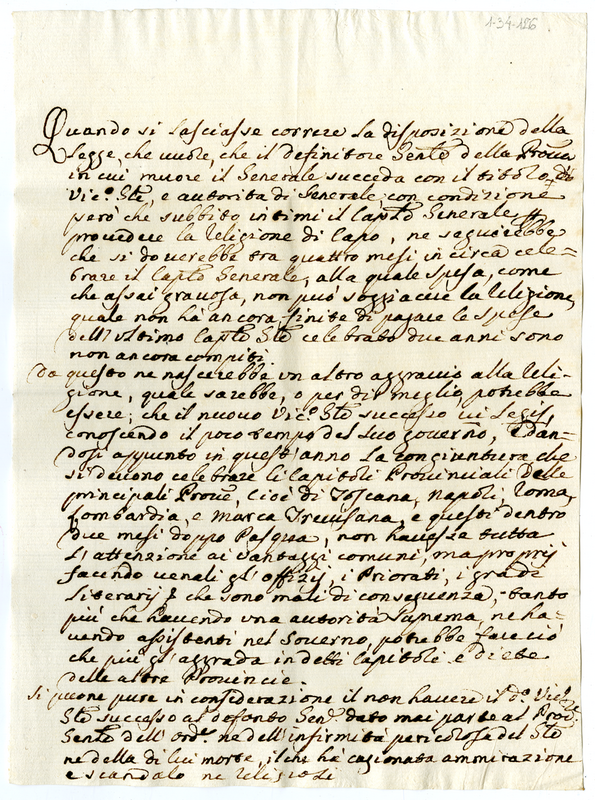 1-34-126
Quando si lasciasse correre la disposizione della
legge, che vuole, che il definitore Gen.le della Prov.a
in cui muore il Generale succeda con il titolo di
Vic.o Gle, e autorità di Generale, con condizione
però che subbito intimi il Cap.lo Generale p
provedere la Religione di Capo, ne seguirebbe
che si doverebbe tra quattro mesi in circa cele=
brare il Cap.lo Generale, alla quale spesa, come
che assai gravosa, non può soggiacere la Religione,
quale non hà ancora finite di pagare le spese
dell'ultimo Cap.lo Gle celebrato due anni sono
non ancora compiti.
Da questo ne nascerebbe un altro aggravio alla Reli-
gione, quale sarebbe, o per dir meglio potrebbe
essere; che il nuovo Vic.o Gle successo vi Legis,
conoscendo il poco tempo del suo governo, e dan-
dosi appunto in quest'anno la congiuntura che
si devono celebrare li Capitoli Provinciali delle
principali Prov.e, cioè di Toscana, Napoli, Roma,
Lombardia, e Marca Trevisana, e questi dentro
due mesi doppo Pasqua, non havesse tutta
l'attenzione ai vantaggi comuni, ma proprij
facendo venali gl'offizij, i Priorati, i gradi
literarij che sono mali di conseguenza, tanto
più che havendo una autorità suprema, ne ha-
vendo assistenti nel Governo, potrebbe fare ciò
che più gl'aggrada in detti Capitoli e diete
delle altre Provincie.
Si puone pure in considerazione il non havere il d.o Vic.o
Gle successo al defonto Gen.le dato mai parte al Proc.re
Gen.le dell'Ord.e ne dell'infirmità pericolosa del Gle
ne della di lui morte, il che hà cagionata ammirazione
e scandalo ne Religiosi